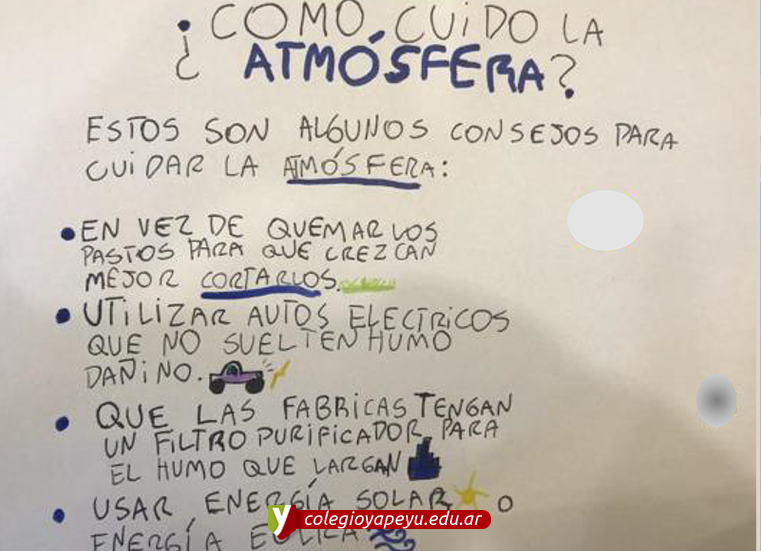 ¿COMO CUIDO LA
ATMÓSFERA?
ESTOS SON ALGUNOS CONSEJOS PARA
CUIDAR LA ATMÓSFERA:
• EN VEZ DE QUEMAR LOS
PASTOS PARA QUE CREZCAN
MEJOR CORTARLOS.
• UTILIZAR AUTOS ELECTRICOS
QUE NO SUELTEN HUMO
DAÑINO.
• QUE LAS FABRICAS TENGAN
UN FILTRO PURIFICADOR PARA
EL HUMO QUE LARGAN
• USAR ENERGÍA SOLAR O
ENERGÍA EÓLICA
y colegioyapeyu.edu.ar